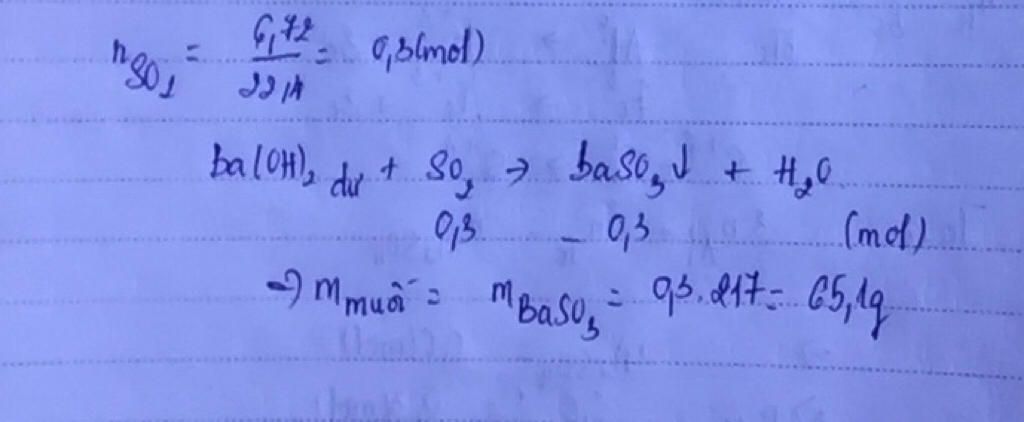 nSO₂ = 6,72/22,4 = 0,3(mol)
ba(OH)₂ dư + SO₂ → baSO₃↓ + H₂O
0,3 – 0,3 (mol)
=> m muối = mBaSO₃ = 0,3.217= 65,1g